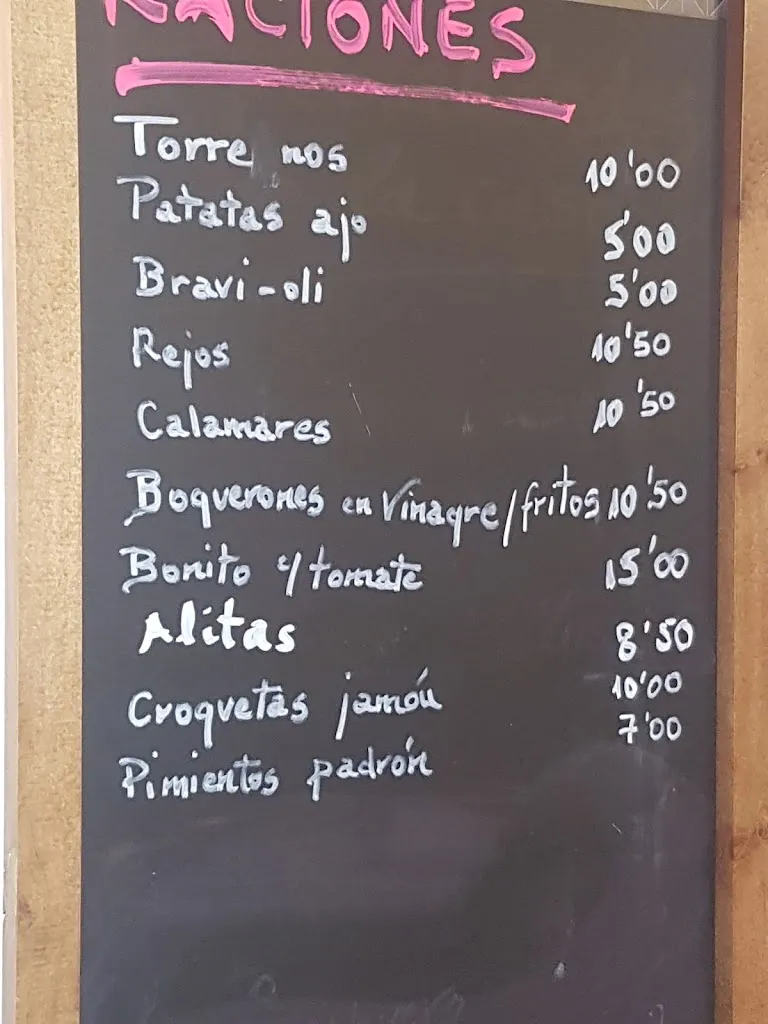 RACIONES
Torre nos 10'00
Patatas ajo 5'00
Bravi-oli 5'00
Rejos 10'50
Calamares 10'50
Boquerones en vinagre/fritos 10'50
Bonito c/tomate 15'00
Alitas 8'50
Croquetas jamón 10'00
Pimientos padrón 7'00